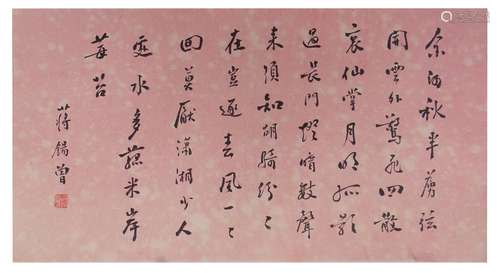 金河秋半虜弦
開雲外驚飛四散
哀仙掌月明孤影
過長門燈暗數聲
来須知胡騎紛〻
在豈逐春風一〻
回莫厭瀟湘少人
處水多菰米岸
莓苔
蔣錫曾